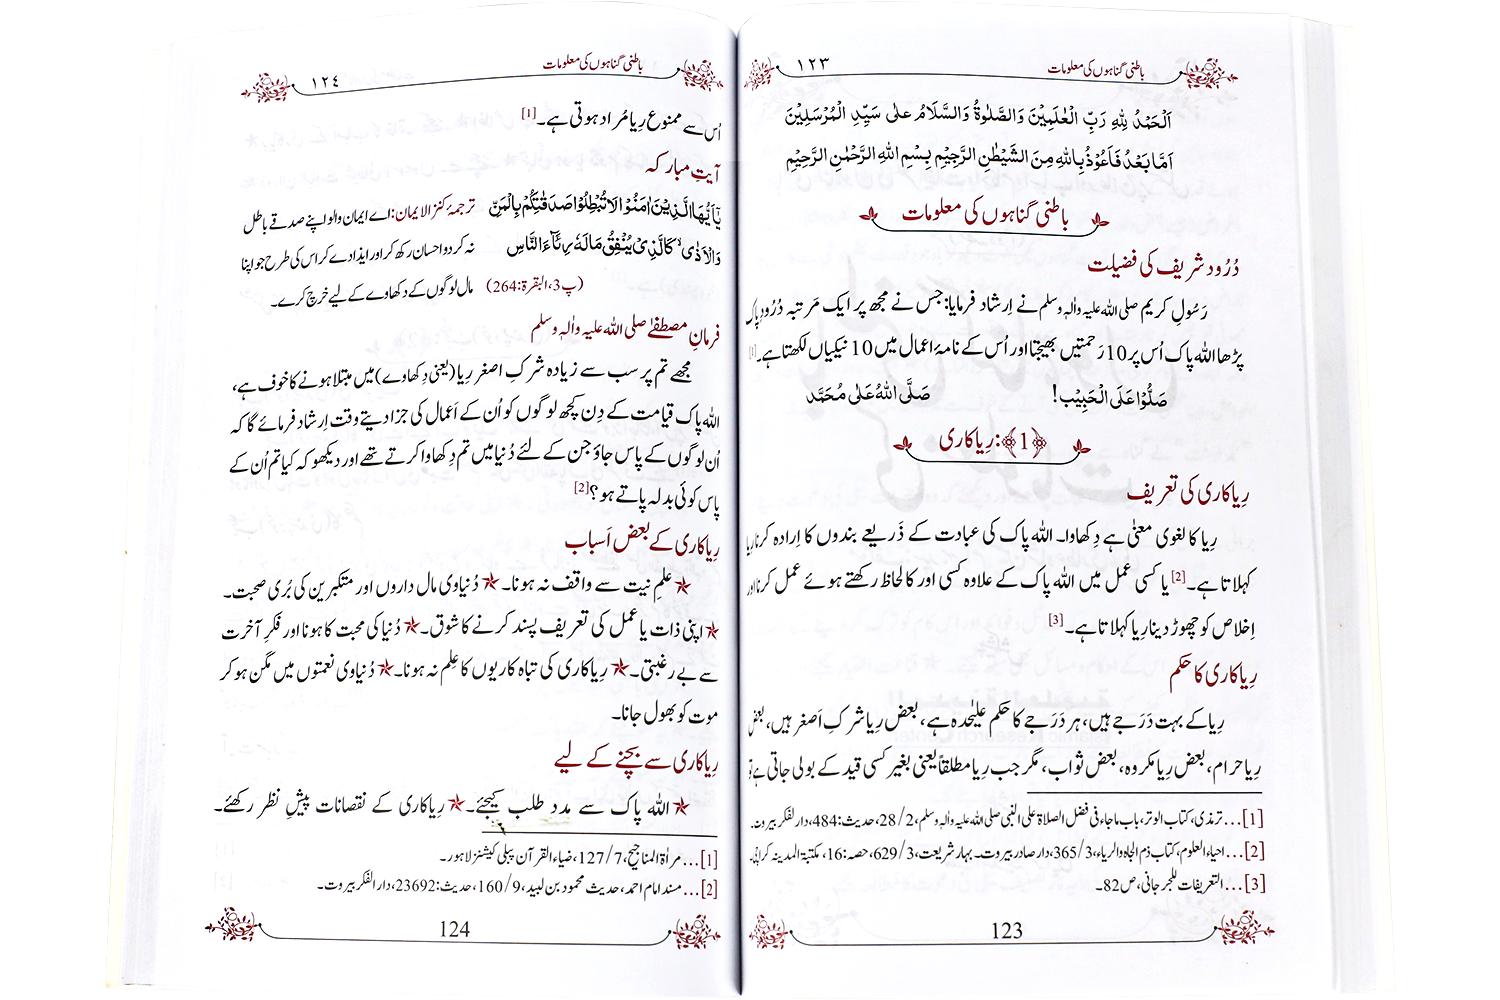 باطنی گناہوں کی معلومات ١٢٣
اَلْحَمْدُ لِلّٰهِ رَبِّ الْعٰلَمِيْنَ وَالصَّلٰوةُ وَالسَّلَامُ عَلٰى سَيِّدِ الْمُرْسَلِيْنَ
اَمَّا بَعْدُ فَاَعُوْذُ بِاللّٰهِ مِنَ الشَّيْطٰنِ الرَّجِيْمِ بِسْمِ اللّٰهِ الرَّحْمٰنِ الرَّحِيْمِ
باطنی گناہوں کی معلومات
دُرُود شریف کی فضیلت
رَسُولِ کریم صلی اللہ علیہ واٰلہٖ وسلم نے اِرشاد فرمایا: جس نے مجھ پر ایک مَرتبہ دُرُودِ پاک
پڑھا اللہ پاک اُس پر 10 رَحمتیں بھیجتا اور اُس کے نامۂ اعمال میں 10 نیکیاں لکھتا ہے۔[1]
صَلُّوْا عَلَى الْحَبِيْب! صَلَّى اللهُ عَلٰى مُحَمَّد
﴿1﴾: رِیاکاری
رِیاکاری کی تعریف
رِیا کا لغوی معنیٰ ہے دِکھاوا۔ اللہ پاک کی عبادت کے ذَریعے بندوں کا اِرادہ کرنا رِیا
کہلاتا ہے۔[2] یا کسی عمل میں اللہ پاک کے علاوہ کسی اور کا لحاظ رکھتے ہوئے عمل کرنا اور
اِخلاص کو چھوڑ دینا رِیا کہلاتا ہے۔[3]
رِیاکاری کا حکم
رِیا کے بہت دَرَجے ہیں، ہر دَرَجے کا حکم علیٰحدہ ہے، بعض رِیا شرکِ اَصغر ہیں، بعض
رِیا حرام، بعض رِیا مکروہ، بعض ثواب، مگر جب رِیا مطلقاً یعنی بغیر کسی قید کے بولی جاتی ہے تو
[1]... ترمذی، کتاب الوتر، باب ماجاء فی فضل الصلاة علی النبی صلی اللہ علیہ واٰلہٖ وسلم، 28/2، حدیث: 484، دار الفکر بیروت۔
[2]... احیاء العلوم، کتاب ذم الجاہ والریاء، 365/3، دار صادر بیروت۔ بہار شریعت، 629/3، حصہ: 16، مکتبۃ المدینہ کراچی۔
[3]... التعریفات للجرجانی، ص 82۔
123
باطنی گناہوں کی معلومات ١٢٤
اُس سے ممنوع رِیا مُراد ہوتی ہے۔[1]
آیتِ مبارکہ
يٰۤاَيُّهَا الَّذِيْنَ اٰمَنُوْا لَا تُبْطِلُوْا صَدَقٰتِكُمْ بِالْمَنِّ ترجمۂ کنز الایمان: اے ایمان والو اپنے صدقے باطل
وَالْاَذٰى ۙ كَالَّذِيْ يُنْفِقُ مَالَهٗ رِئَآءَ النَّاسِ نہ کر دو احسان رکھ کر اور ایذا دے کر اس کی طرح جو اپنا
(پ3، البقرة: 264) مال لوگوں کے دکھاوے کے لیے خرچ کرے۔
فرمانِ مصطفےٰ صلی اللہ علیہ واٰلہٖ وسلم
مجھے تم پر سب سے زیادہ شرکِ اصغر رِیا (یعنی دِکھاوے) میں مبتلا ہونے کا خوف ہے،
اللہ پاک قیامت کے دِن کچھ لوگوں کو اُن کے اَعمال کی جزا دیتے وقت اِرشاد فرمائے گا کہ
اُن لوگوں کے پاس جاؤ جن کے لئے دُنیا میں تم دِکھاوا کرتے تھے اور دیکھو کہ کیا تم اُن کے
پاس کوئی بدلہ پاتے ہو؟[2]
رِیاکاری کے بعض اَسباب
علمِ نیت سے واقف نہ ہونا۔ دُنیاوی مال داروں اور متکبرین کی بُری صحبت۔
اپنی ذات یا عمل کی تعریف پسند کرنے کا شوق۔ دُنیا کی محبت کا ہونا اور فکرِ آخرت
سے بے رغبتی۔ رِیاکاری کی تباہ کاریوں کا علم نہ ہونا۔ دُنیاوی نعمتوں میں مگن ہو کر
موت کو بھول جانا۔
رِیاکاری سے بچنے کے لیے
اللہ پاک سے مدد طلب کیجئے۔ رِیاکاری کے نقصانات پیشِ نظر رکھئے۔
[1]... مراٰة المناجیح، 127/7، ضیاء القرآن پبلی کیشنز لاہور۔
[2]... مسند امام احمد، حدیث محمود بن لبید، 160/9، حدیث: 23692، دار الفکر بیروت۔
124